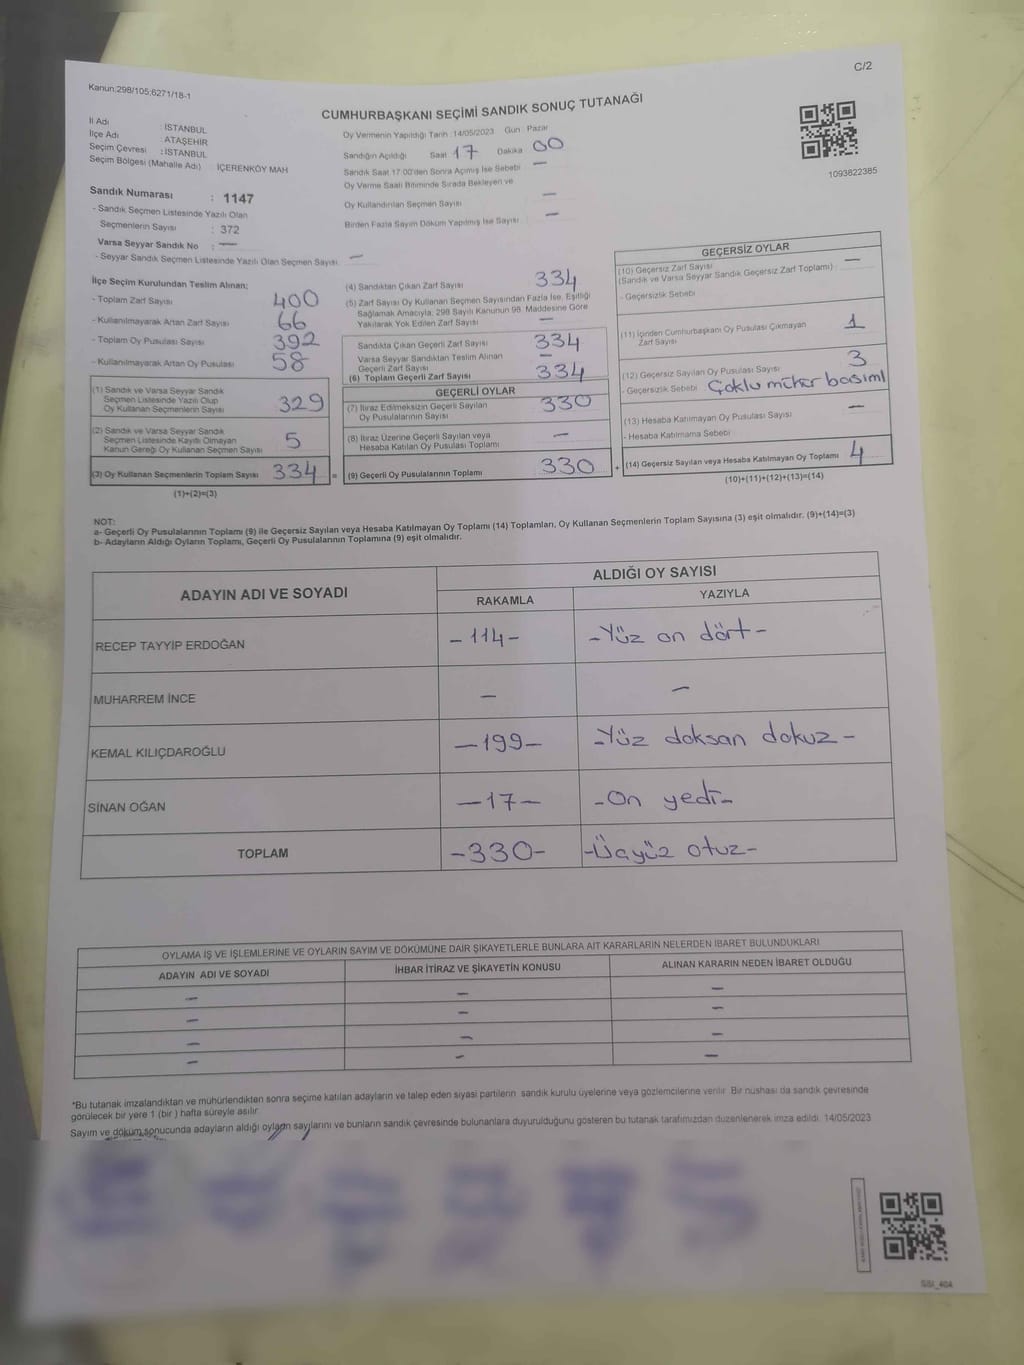 C/2
Kanun:298/105;6271/18-1
CUMHURBAŞKANI SEÇİMİ SANDIK SONUÇ TUTANAĞI
İl Adı : İSTANBUL
İlçe Adı : ATAŞEHİR
Seçim Çevresi : İSTANBUL
Seçim Bölgesi (Mahalle Adı) : İÇERENKÖY MAH
Sandık Numarası : 1147
- Sandık Seçmen Listesinde Yazılı Olan
Seçmenlerin Sayısı : 372
Varsa Seyyar Sandık No : —
- Seyyar Sandık Seçmen Listesinde Yazılı Olan Seçmen Sayısı: —
Oy Vermenin Yapıldığı Tarih :14/05/2023 Gün : Pazar
Sandığın Açıldığı Saat 17 Dakika 00
Sandık Saat 17:00'den Sonra Açımış İse Sebebi —
Oy Verme Saati Bitiminde Sırada Bekleyen ve
Oy Kullandırılan Seçmen Sayısı —
Birden Fazla Sayım Döküm Yapılmış İse Sayısı —
1093822385
İlçe Seçim Kurulundan Teslim Alınan;
- Toplam Zarf Sayısı 400
- Kullanılmayarak Artan Zarf Sayısı 66
- Toplam Oy Pusulası Sayısı 392
- Kullanılmayarak Artan Oy Pusulası 58
(1) Sandık ve Varsa Seyyar Sandık
Seçmen Listesinde Yazılı Olup
Oy Kullanan Seçmenlerin Sayısı 329
(2) Sandık ve Varsa Seyyar Sandık
Seçmen Listesinde Kayıtlı Olmayan
Kanun Gereği Oy Kullanan Seçmen Sayısı 5
(3) Oy Kullanan Seçmenlerin Toplam Sayısı 334 =
(1)+(2)=(3)
(4) Sandıktan Çıkan Zarf Sayısı 334
(5) Zarf Sayısı Oy Kullanan Seçmen Sayısından Fazla İse, Eşitliği
Sağlamak Amacıyla, 298 Sayılı Kanunun 98. Maddesine Göre
Yakılarak Yok Edilen Zarf Sayısı —
Sandıkta Çıkan Geçerli Zarf Sayısı 334
Varsa Seyyar Sandıktan Teslim Alınan
Geçerli Zarf Sayısı —
(6) Toplam Geçerli Zarf Sayısı 334
GEÇERLİ OYLAR
(7) İtiraz Edilmeksizin Geçerli Sayılan
Oy Pusulalarının Sayısı 330
(8) İtiraz Üzerine Geçerli Sayılan veya
Hesaba Katılan Oy Pusulası Toplamı —
(9) Geçerli Oy Pusulalarının Toplamı 330 +
GEÇERSİZ OYLAR
(10) Geçersiz Zarf Sayısı —
(Sandık ve Varsa Seyyar Sandık Geçersiz Zarf Toplamı)
- Geçersizlik Sebebi
(11) İçinden Cumhurbaşkanı Oy Pusulası Çıkmayan
Zarf Sayısı 1
(12) Geçersiz Sayılan Oy Pusulası Sayısı 3
- Geçersizlik Sebebi Çoklu mühür basımı
(13) Hesaba Katılmayan Oy Pusulası Sayısı —
- Hesaba Katılmama Sebebi
(14) Geçersiz Sayılan veya Hesaba Katılmayan Oy Toplamı 4
(10)+(11)+(12)+(13)=(14)
NOT:
a- Geçerli Oy Pusulalarının Toplamı (9) ile Geçersiz Sayılan veya Hesaba Katılmayan Oy Toplamı (14) Toplamları, Oy Kullanan Seçmenlerin Toplam Sayısına (3) eşit olmalıdır. (9)+(14)=(3)
b- Adayların Aldığı Oyların Toplamı, Geçerli Oy Pusulalarının Toplamına (9) eşit olmalıdır.
ADAYIN ADI VE SOYADI
ALDIĞI OY SAYISI
RAKAMLA YAZIYLA
RECEP TAYYİP ERDOĞAN -114- -Yüz on dört-
MUHARREM İNCE — —
KEMAL KILIÇDAROĞLU —199— -Yüz doksan dokuz-
SİNAN OĞAN —17— -On yedi-
TOPLAM -330- -Üçyüz otuz-
OYLAMA İŞ VE İŞLEMLERİNE VE OYLARIN SAYIM VE DÖKÜMÜNE DAİR ŞİKAYETLERLE BUNLARA AİT KARARLARIN NELERDEN İBARET BULUNDUKLARI
ADAYIN ADI VE SOYADI İHBAR İTİRAZ VE ŞİKAYETİN KONUSU ALINAN KARARIN NEDEN İBARET OLDUĞU
— — —
— — —
— — —
— — —
*Bu tutanak imzalandıktan ve mühürlendikten sonra seçime katılan adayların ve talep eden siyasi partilerin sandık kurulu üyelerine veya gözlemcilerine verilir. Bir nüshası da sandık çevresinde
görülecek bir yere 1 (bir ) hafta süreyle asılır.
Sayım ve döküm sonucunda adayların aldığı oyların sayılarını ve bunların sandık çevresinde bulunanlara duyurulduğunu gösteren bu tutanak tarafımızdan düzenlenerek imza edildi. 14/05/2023
SSI_404